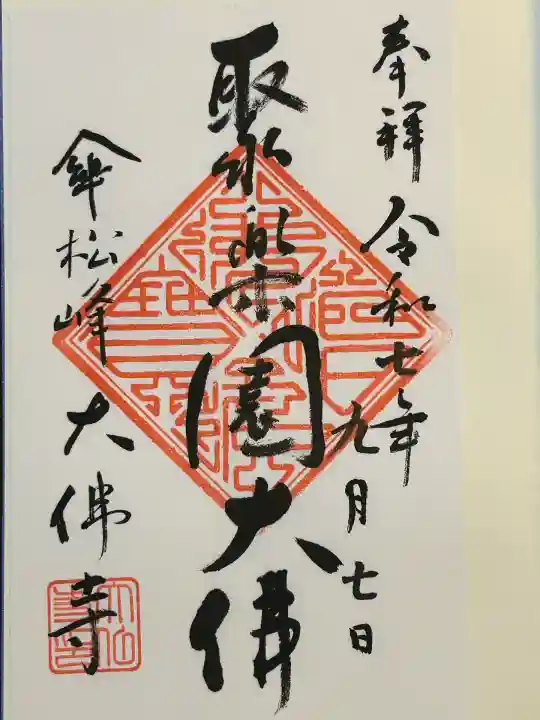 奉拝 令和七年九月七日
聚楽園大佛
傘松峰大佛寺